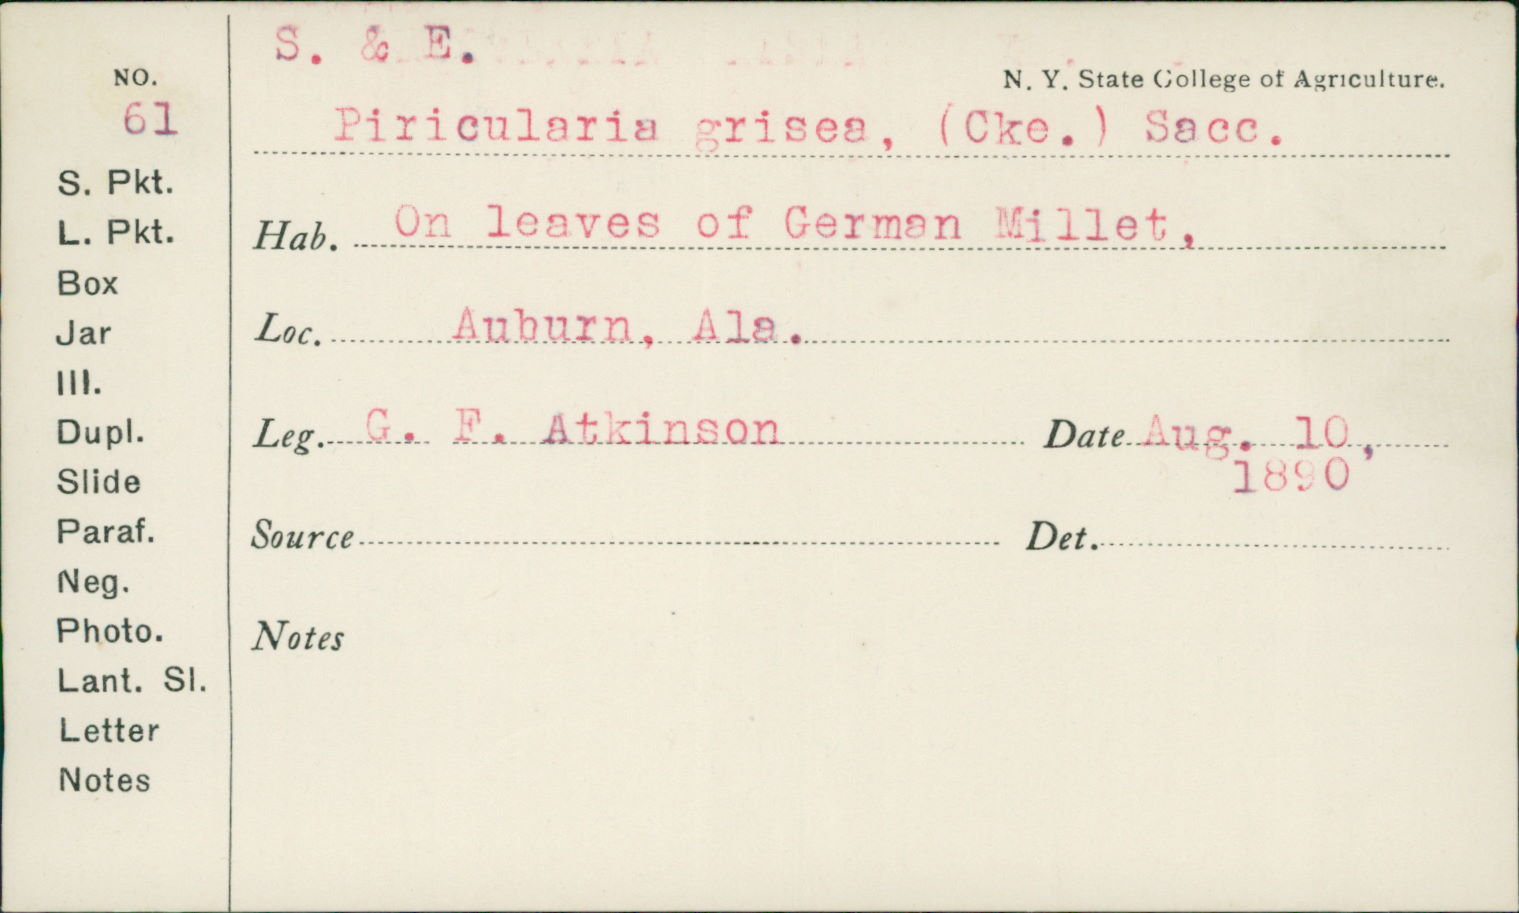 S. & E.
N. Y. State College of Agriculture.
NO.
61
Piricularia grisea, (Cke.) Sacc.
S. Pkt.
L. Pkt.
Box
Jar
Ill.
Dupl.
Slide
Paraf.
Neg.
Photo.
Lant. Sl.
Letter
Notes
Hab. On leaves of German Millet,
Loc. Auburn, Ala.
Leg. G. F. Atkinson Date Aug. 10,
1890
Source Det.
Notes